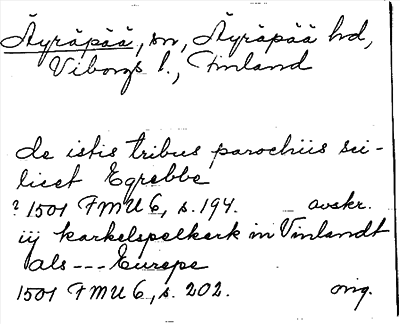 Äyräpää, sn, Äyräpää hd,
Viborgs l., Finland
de istis tribus parochiis sci-
licet Egrebbe
? 1501 FMU 6, s. 194. avskr.
iij karkelspelkerk in Vinlandt
als --- Eurepe
1501 FMU 6, s. 202. orig.